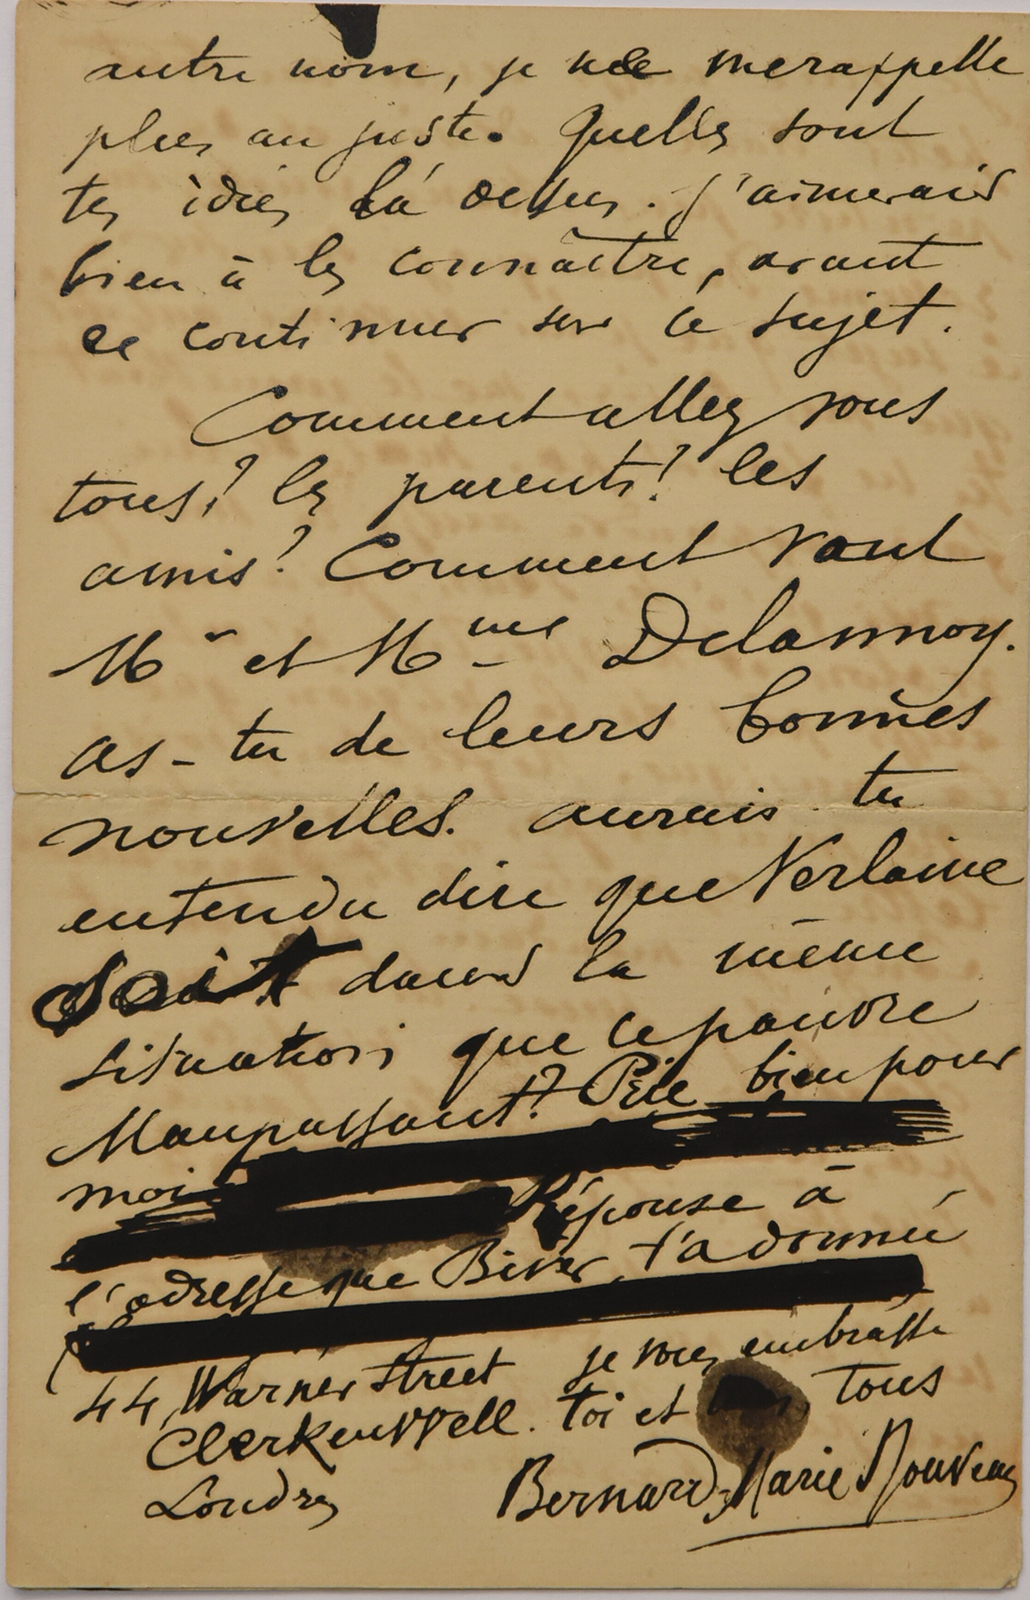 autre nom, je ne me rappelle
plus au juste. Quelles sont
tes idées là dessus. J'aimerais
bien à les connaître, avant
de continuer sur ce sujet.
Comment allez vous
tous? les parents? les
amis? Comment vont
Mr et Mme Delannoy.
as-tu de leurs bonnes
nouvelles. aurais tu
entendu dire que Verlaine
soit dans la même
situation que ce pauvre
Maupassant? Prie bien pour
moi
Réponse à
l'adresse que Biver t'a donnée
44 Warner Street je vous embrasse
Clerkenwell. toi et tous
Londres Bernard-Marie Nouveau